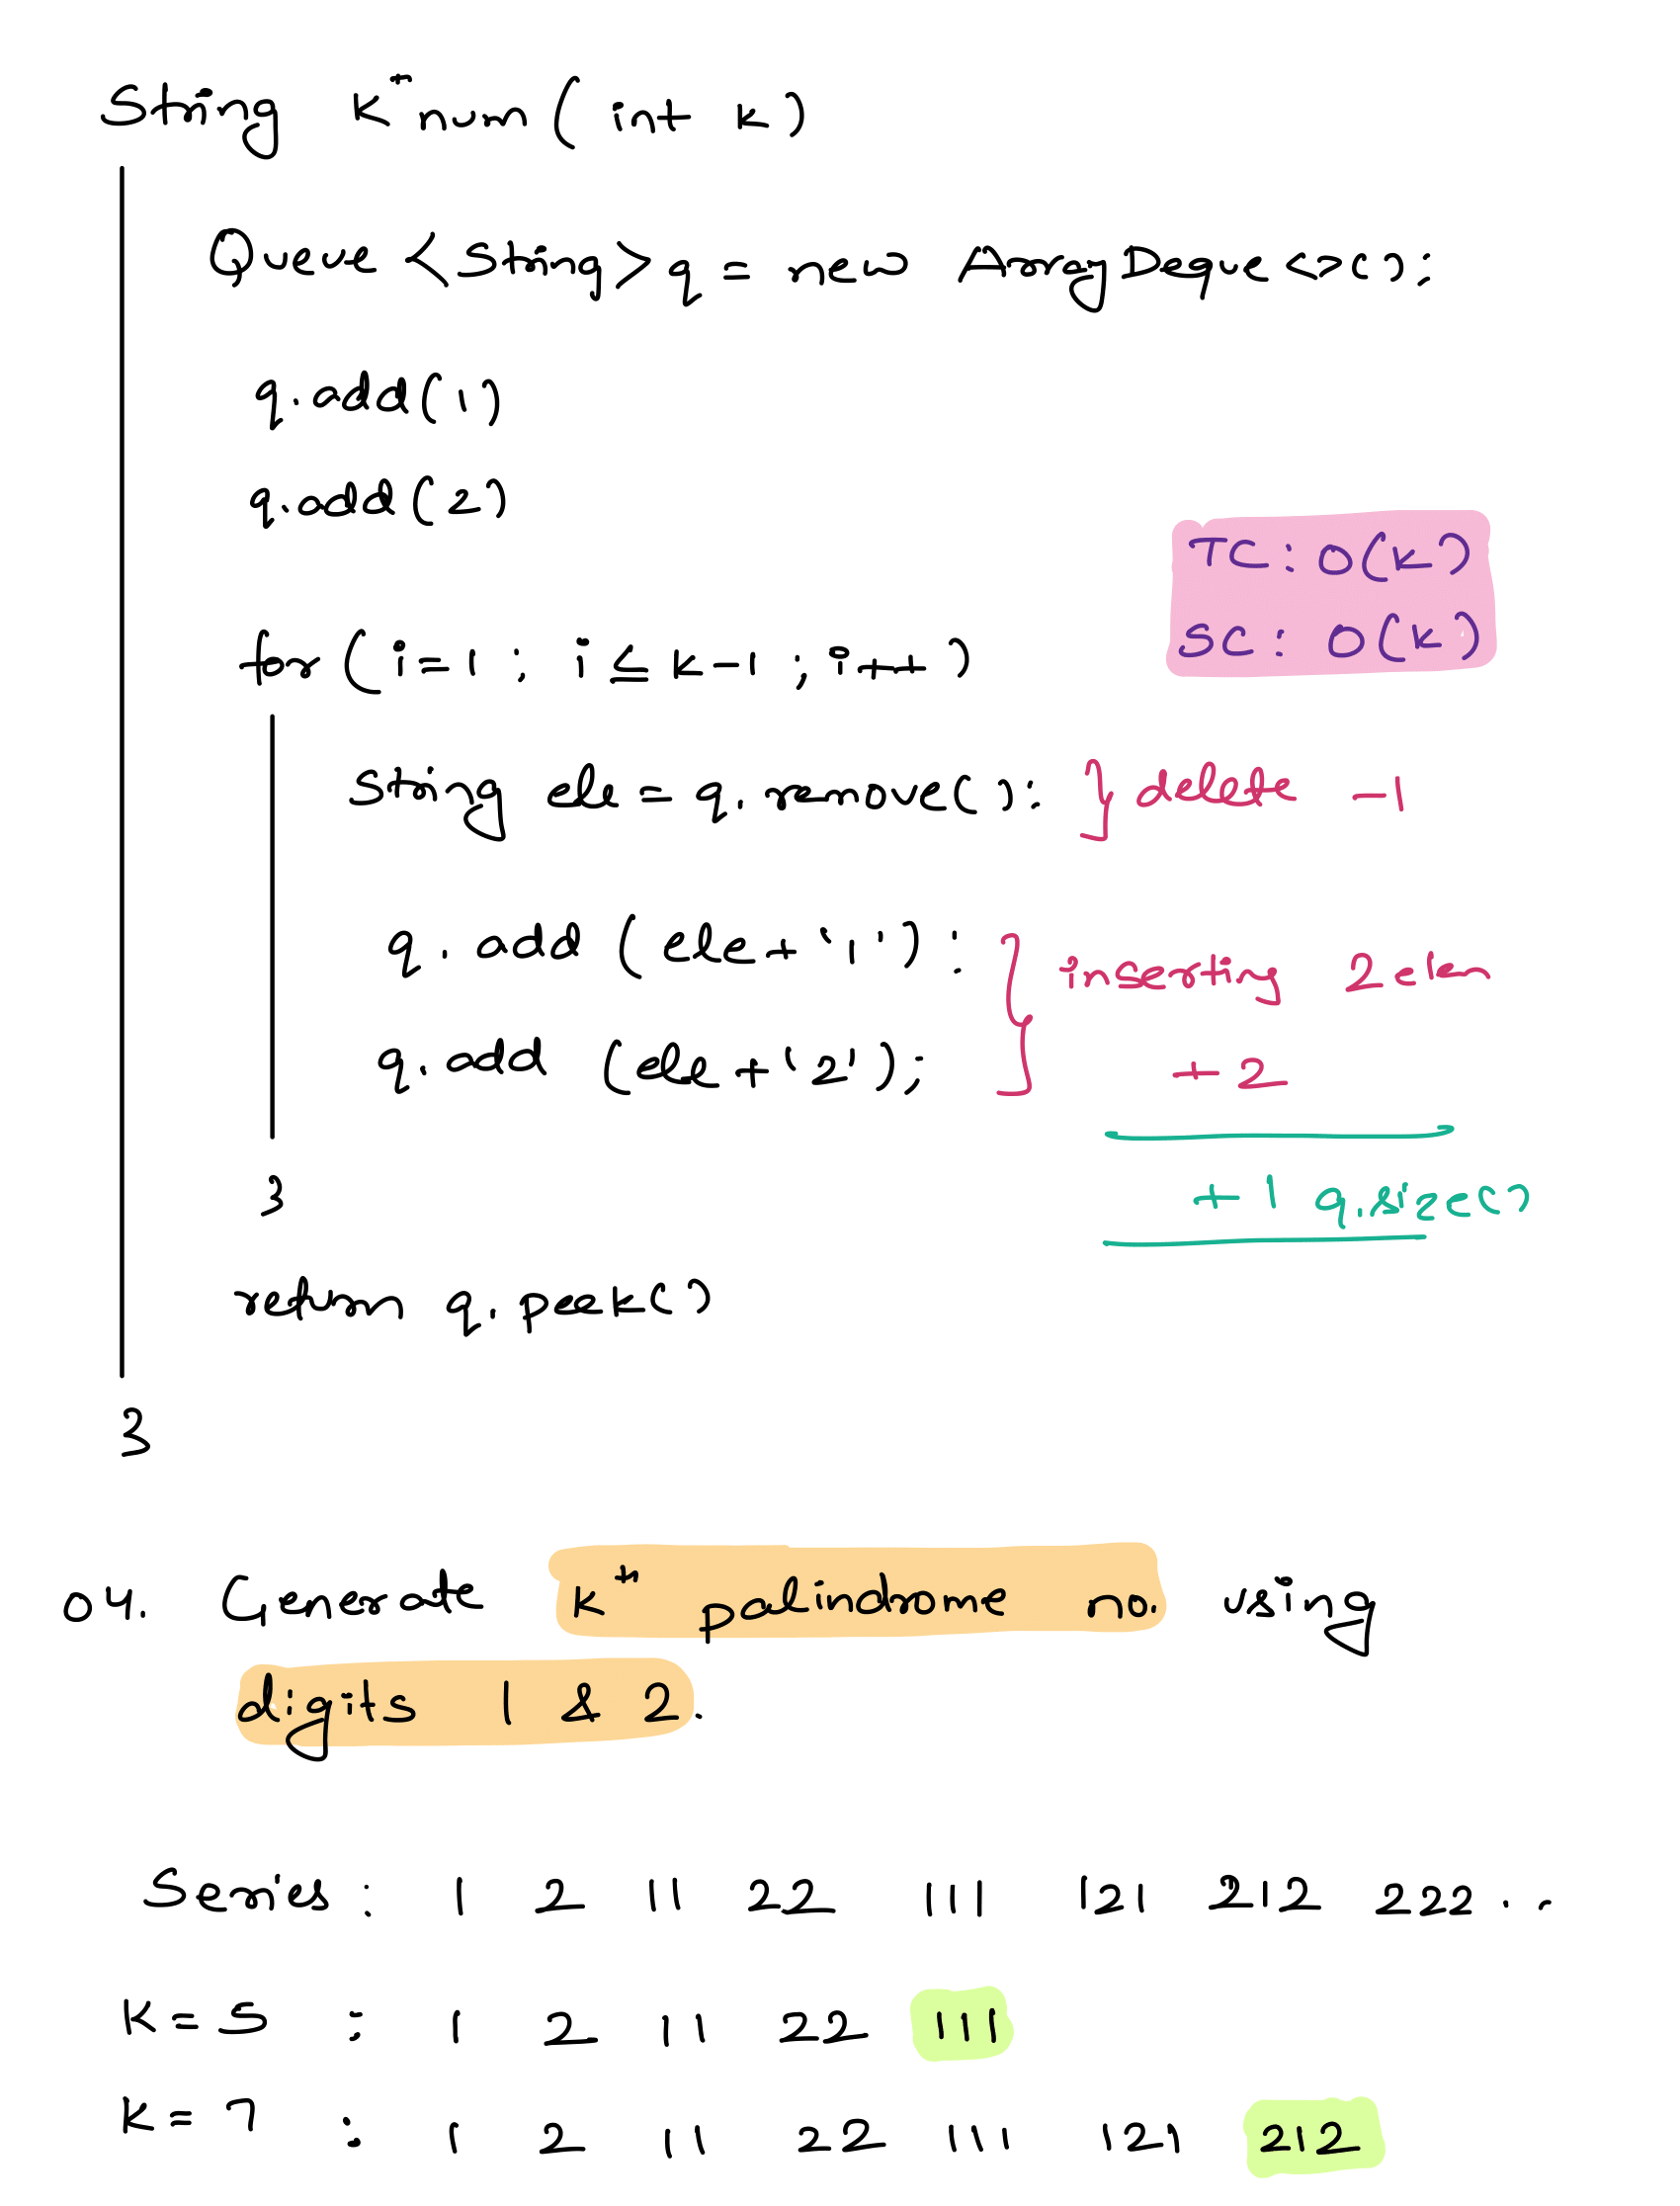 String Kᵗʰ num ( int k )
Queue <String> q = new ArrayDeque<>();
q.add(1)
q.add(2)
TC : O(k)
SC : O(k)
for ( i=1 ; i ≤ k-1 ; i++ )
String ele = q. remove(); } delete -1
q. add ( ele + '1' ); } inserting 2 elem
q. add (ele + '2'); + 2
+ 1 q.size()
}
return q. peek()
}
04. Generate kᵗʰ palindrome no. using
digits 1 & 2.
Series : 1 2 11 22 111 121 212 222 ..
K = 5 : 1 2 11 22 111
K = 7 : 1 2 11 22 111 121 212